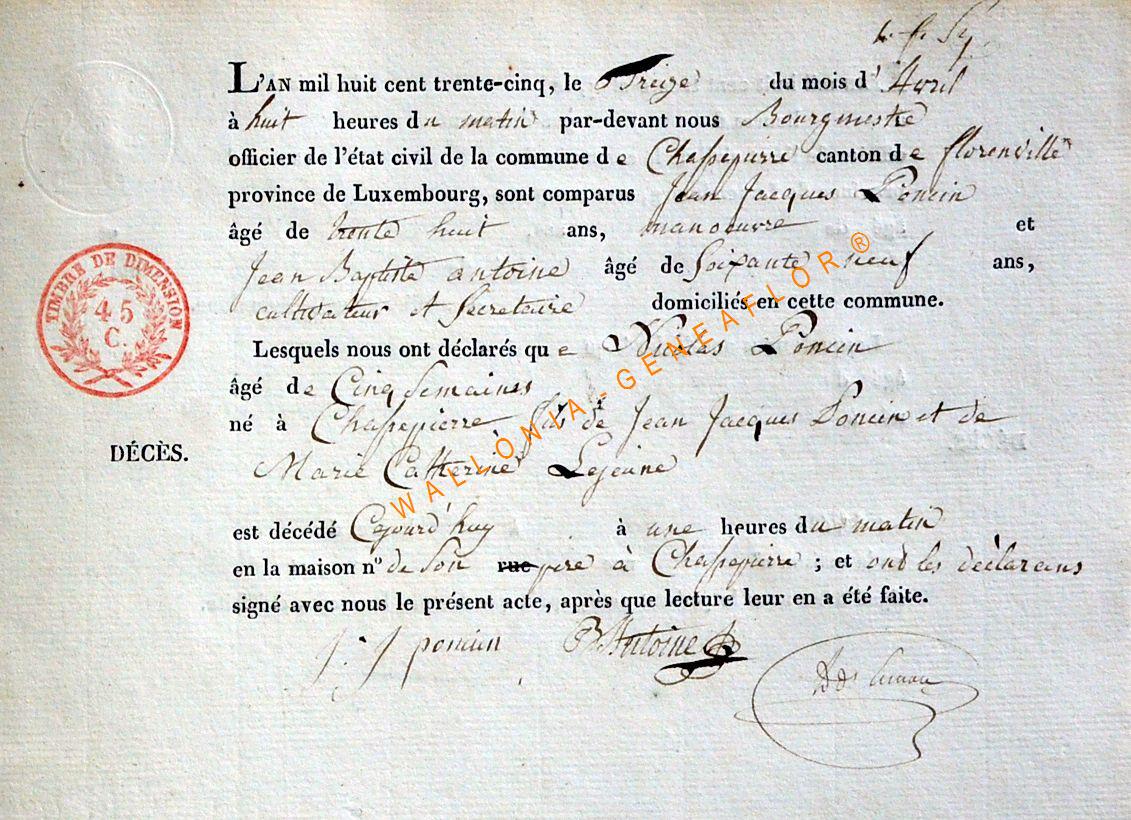 L'AN mil huit cent trente-cinq, le Treize du mois d'Avril
à huit heures du matin par-devant nous Bourgmestre
officier de l'état civil de la commune de Chassepierre canton de florenville
province de Luxembourg, sont comparus Jean Jacques Poncin
âgé de trente huit ans, manoeuvre et
Jean Baptiste antoine âgé de Soixante neuf ans,
cultivateur et Secretaire domiciliés en cette commune.
Lesquels nous ont déclarés que Nicolas Poncin
âgé de Cinq Semaines
né à Chassepierre, fils de Jean Jacques Poncin et de
DÉCÈS.
Marie Catherine Lejeune
est décédé Cejourd'huy à une heures du matin
en la maison n° de Son rue pere à Chassepierre ; et ont les déclarans
signé avec nous le présent acte, après que lecture leur en a été faite.
J. J poncin JB Antoine
TIMBRE DE DIMENSION
45
C.
WALLONIA-GENEAFLOR®